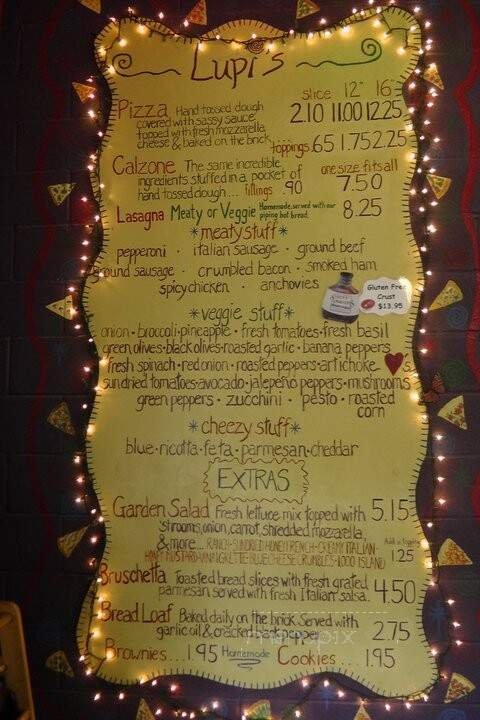 Lupi's
slice 12" 16"
Pizza Hand tossed dough 2.10 11.00 12.25
covered with sassy sauce
topped with fresh mozzarella
cheese & baked on the brick toppings .65 1.75 2.25
Calzone The same incredible one size fits all
ingredients stuffed in a pocket of 7.50
hand tossed dough... fillings .90
Lasagna Meaty or Veggie Homemade, served with our 8.25
piping hot bread.
*meaty stuff*
pepperoni · italian sausage · ground beef
ground sausage · crumbled bacon · smoked ham
spicy chicken · anchovies
Gluten Free
Crust
$13.95
*veggie stuff*
onion · broccoli · pineapple · fresh tomatoes · fresh basil
green olives · black olives · roasted garlic · banana peppers
fresh spinach · red onion · roasted peppers · artichoke ♥'s
sundried tomatoes · avocado · jalepeño peppers · mushrooms
green peppers · zucchini · pesto · roasted
corn
*cheesy stuff*
blue · ricotta · feta · parmesan · cheddar
EXTRAS
Garden Salad Fresh lettuce mix topped with 5.15
'shrooms, onion, carrot, shredded mozzarella,
& more... RANCH · SUNDRIED HONEY FRENCH · CREAMY ITALIAN 1.25
HONEY MUSTARD · VINAIGRETTE · BLUE CHEESE CRUMBLES · 1,000 ISLAND
Bruschetta Toasted bread slices with fresh grated 4.50
parmesan served with fresh Italian salsa.
Bread Loaf Baked daily on the brick. Served with 2.75
garlic oil & cracked black pepper
Brownies... 1.95 Homemade Cookies... 1.95